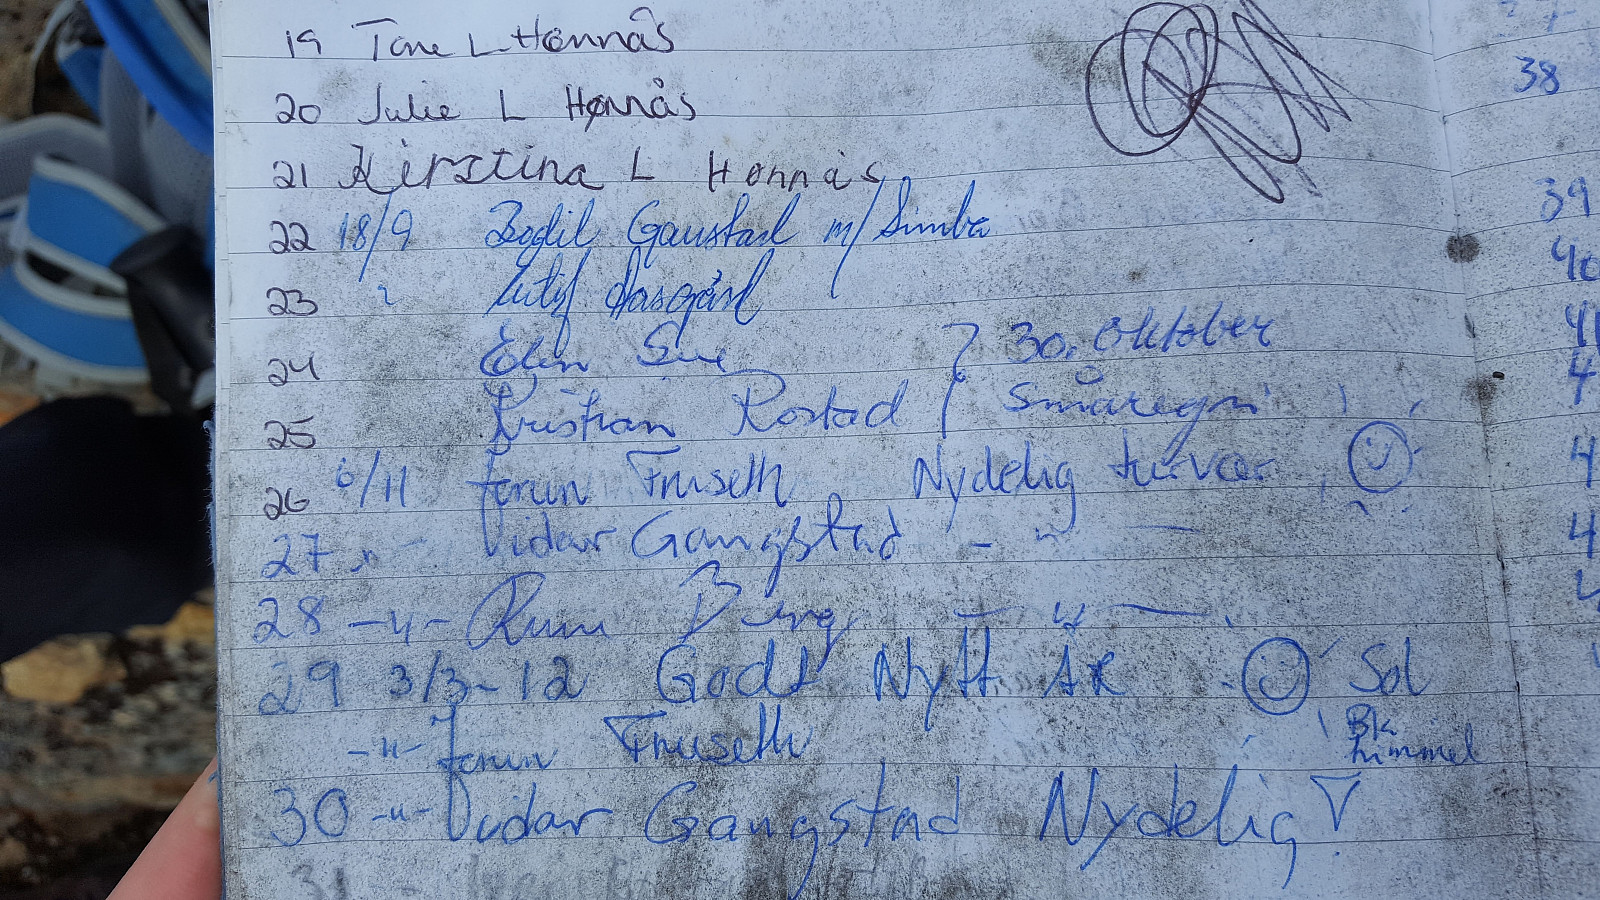 19 Tone L Hønnås
20 Julie L Hønnås
21 Kirstina L Hønnås
22 18/9 Bodil Gaustad m/ Simba
23 "
24 Ellen } 30. Oktober
25 Kristian Rostad Småregn
26 6/11 Jorun Fruseth Nydelig turvær
27 -"- Vidar Gangstad - " -
28 -"- Berg - " -
29 3/3-12 Godt Nytt År Sol
-"- Jorun Fruseth himmel
30 -"- Vidar Gangstad Nydelig!
31
38
39
40
41